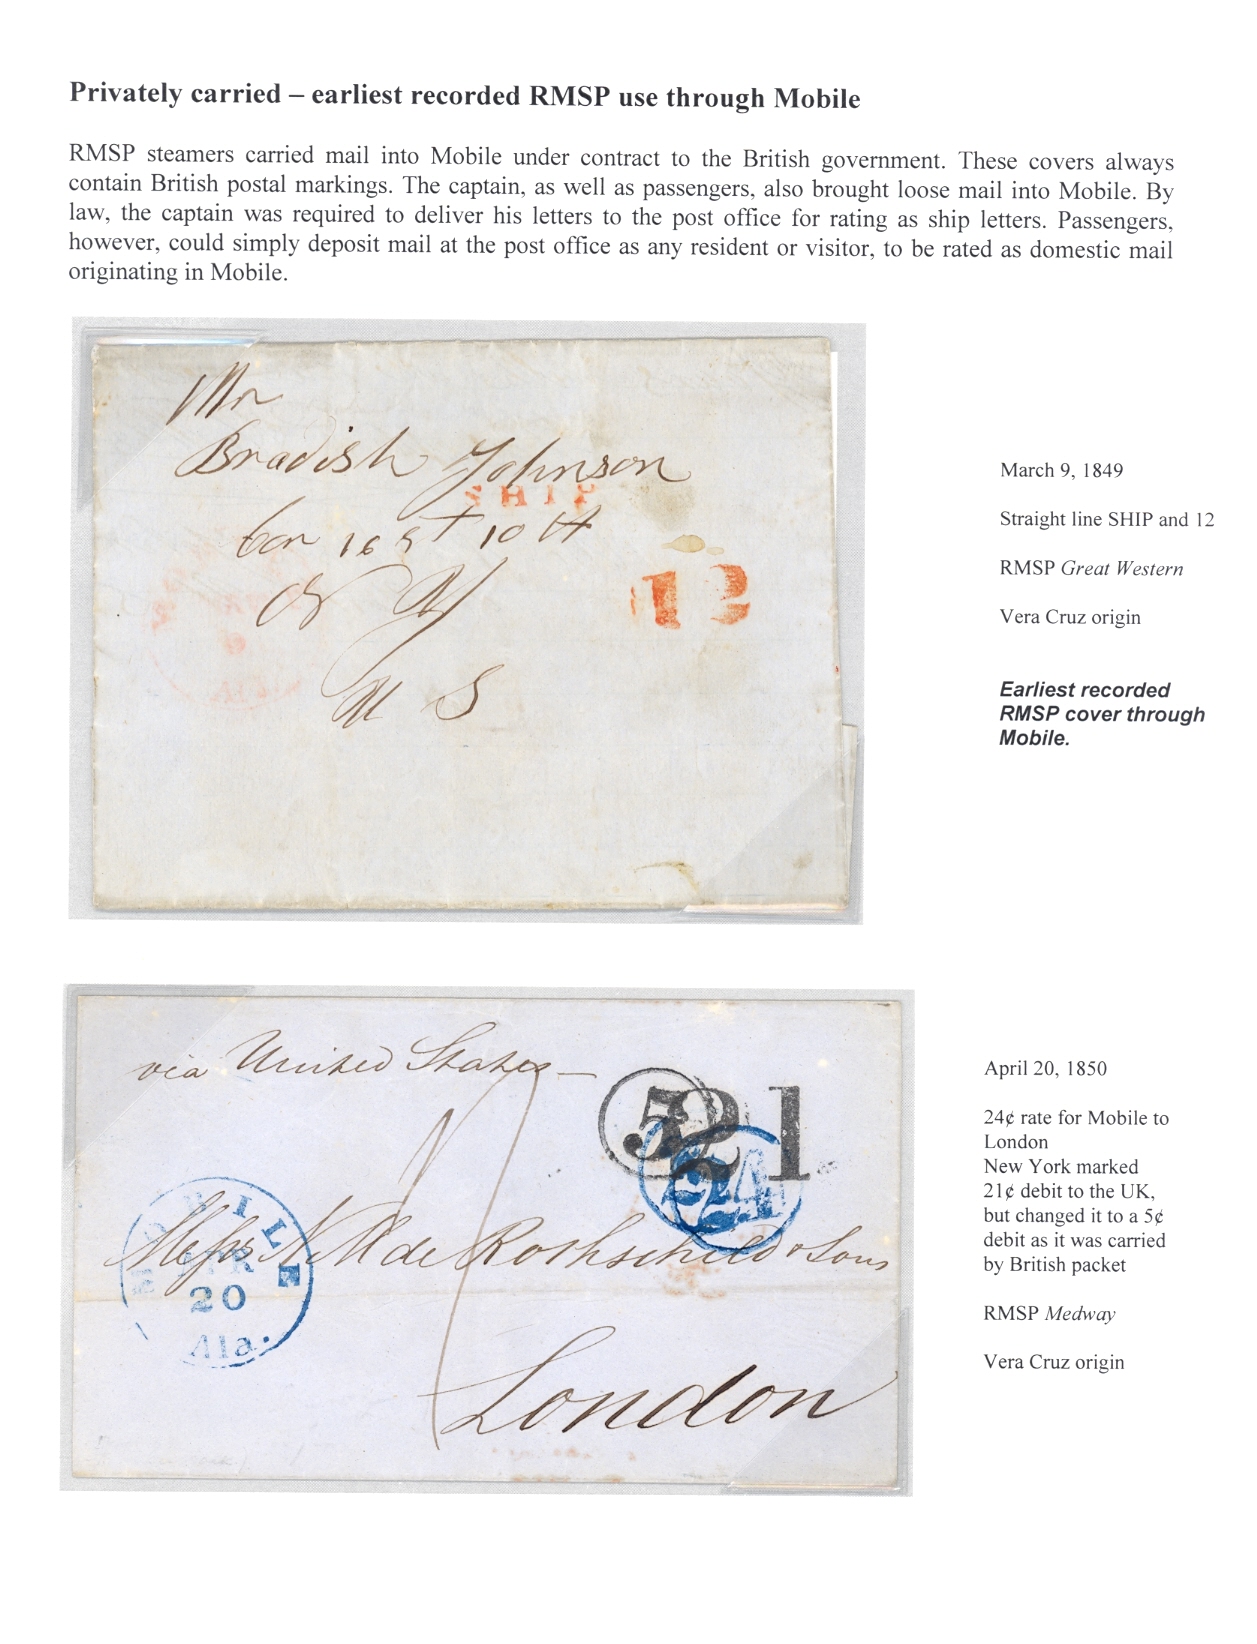 Privately carried – earliest recorded RMSP use through Mobile
RMSP steamers carried mail into Mobile under contract to the British government. These covers always
contain British postal markings. The captain, as well as passengers, also brought loose mail into Mobile. By
law, the captain was required to deliver his letters to the post office for rating as ship letters. Passengers,
however, could simply deposit mail at the post office as any resident or visitor, to be rated as domestic mail
originating in Mobile.
Mr
Bradish Johnson
SHIP
Cor 16 St 10 
N Y
U S
12
9
Ala
March 9, 1849
Straight line SHIP and 12
RMSP Great Western
Vera Cruz origin
Earliest recorded
RMSP cover through
Mobile.
via United States
5
21
24
MOBILE
APR
20
Ala.
Messrs N M de Rothschild & Sons
London
April 20, 1850
24¢ rate for Mobile to
London
New York marked
21¢ debit to the UK,
but changed it to a 5¢
debit as it was carried
by British packet
RMSP Medway
Vera Cruz origin